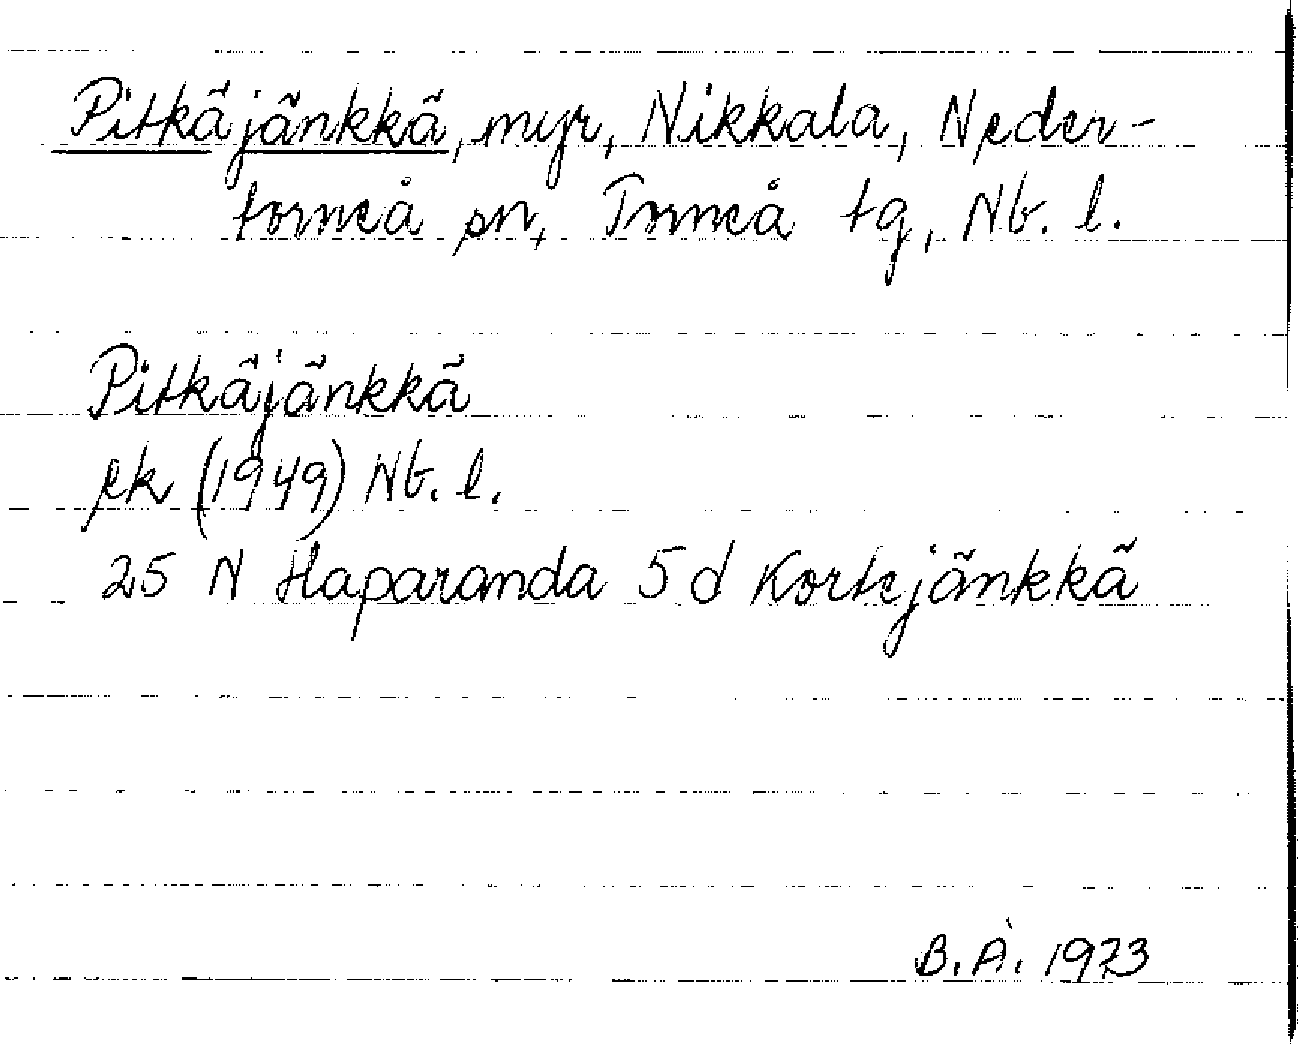 Pitkäjänkkä, myr, Nikkala, Neder-
torneå sn, Torneå tg, Nb. l.
Pitkäjänkkä
ek (1949) Nb. l.
25 N Haparanda 5 d Kortejänkkä
B. Å. 1973